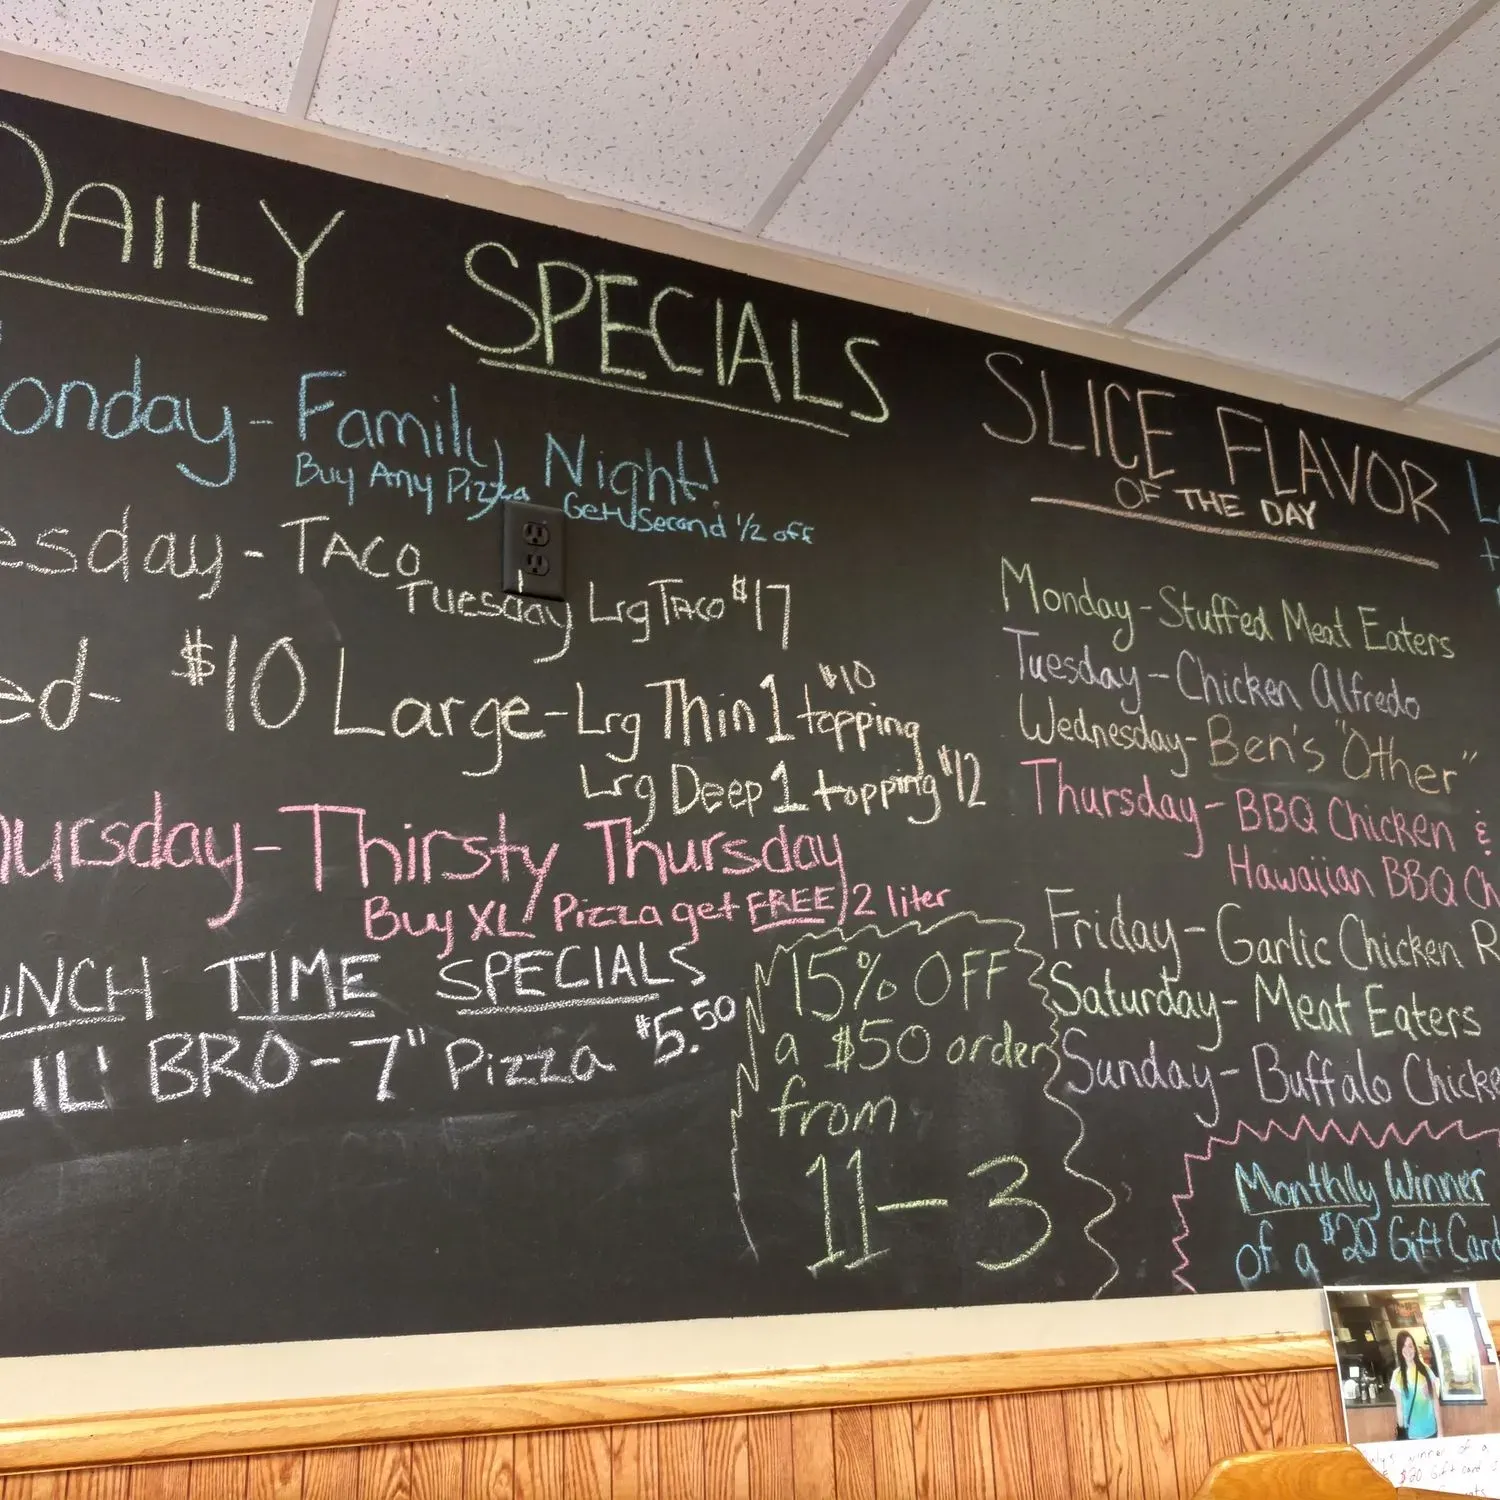 DAILY SPECIALS
onday - Family Night!
Buy Any Pizza Get Second 1/2 off
esday - TACO
Tuesday Lrg TACO $17
ed - $10 Large - Lrg Thin 1 topping $10
Lrg Deep 1 topping $12
hursday - Thirsty Thursday
Buy XL Pizza get FREE 2 liter
UNCH TIME SPECIALS
LIL' BRO - 7" Pizza $5.50
15% OFF
a $50 order
from
11 - 3
SLICE FLAVOR
OF THE DAY
Monday - Stuffed Meat Eaters
Tuesday - Chicken Alfredo
Wednesday - Ben's "Other"
Thursday - BBQ Chicken &
Hawaiian BBQ Ch
Friday - Garlic Chicken R
Saturday - Meat Eaters
Sunday - Buffalo Chicke
Monthlly Winner
of a $20 Gift Card
winner of a
$20 Gift card